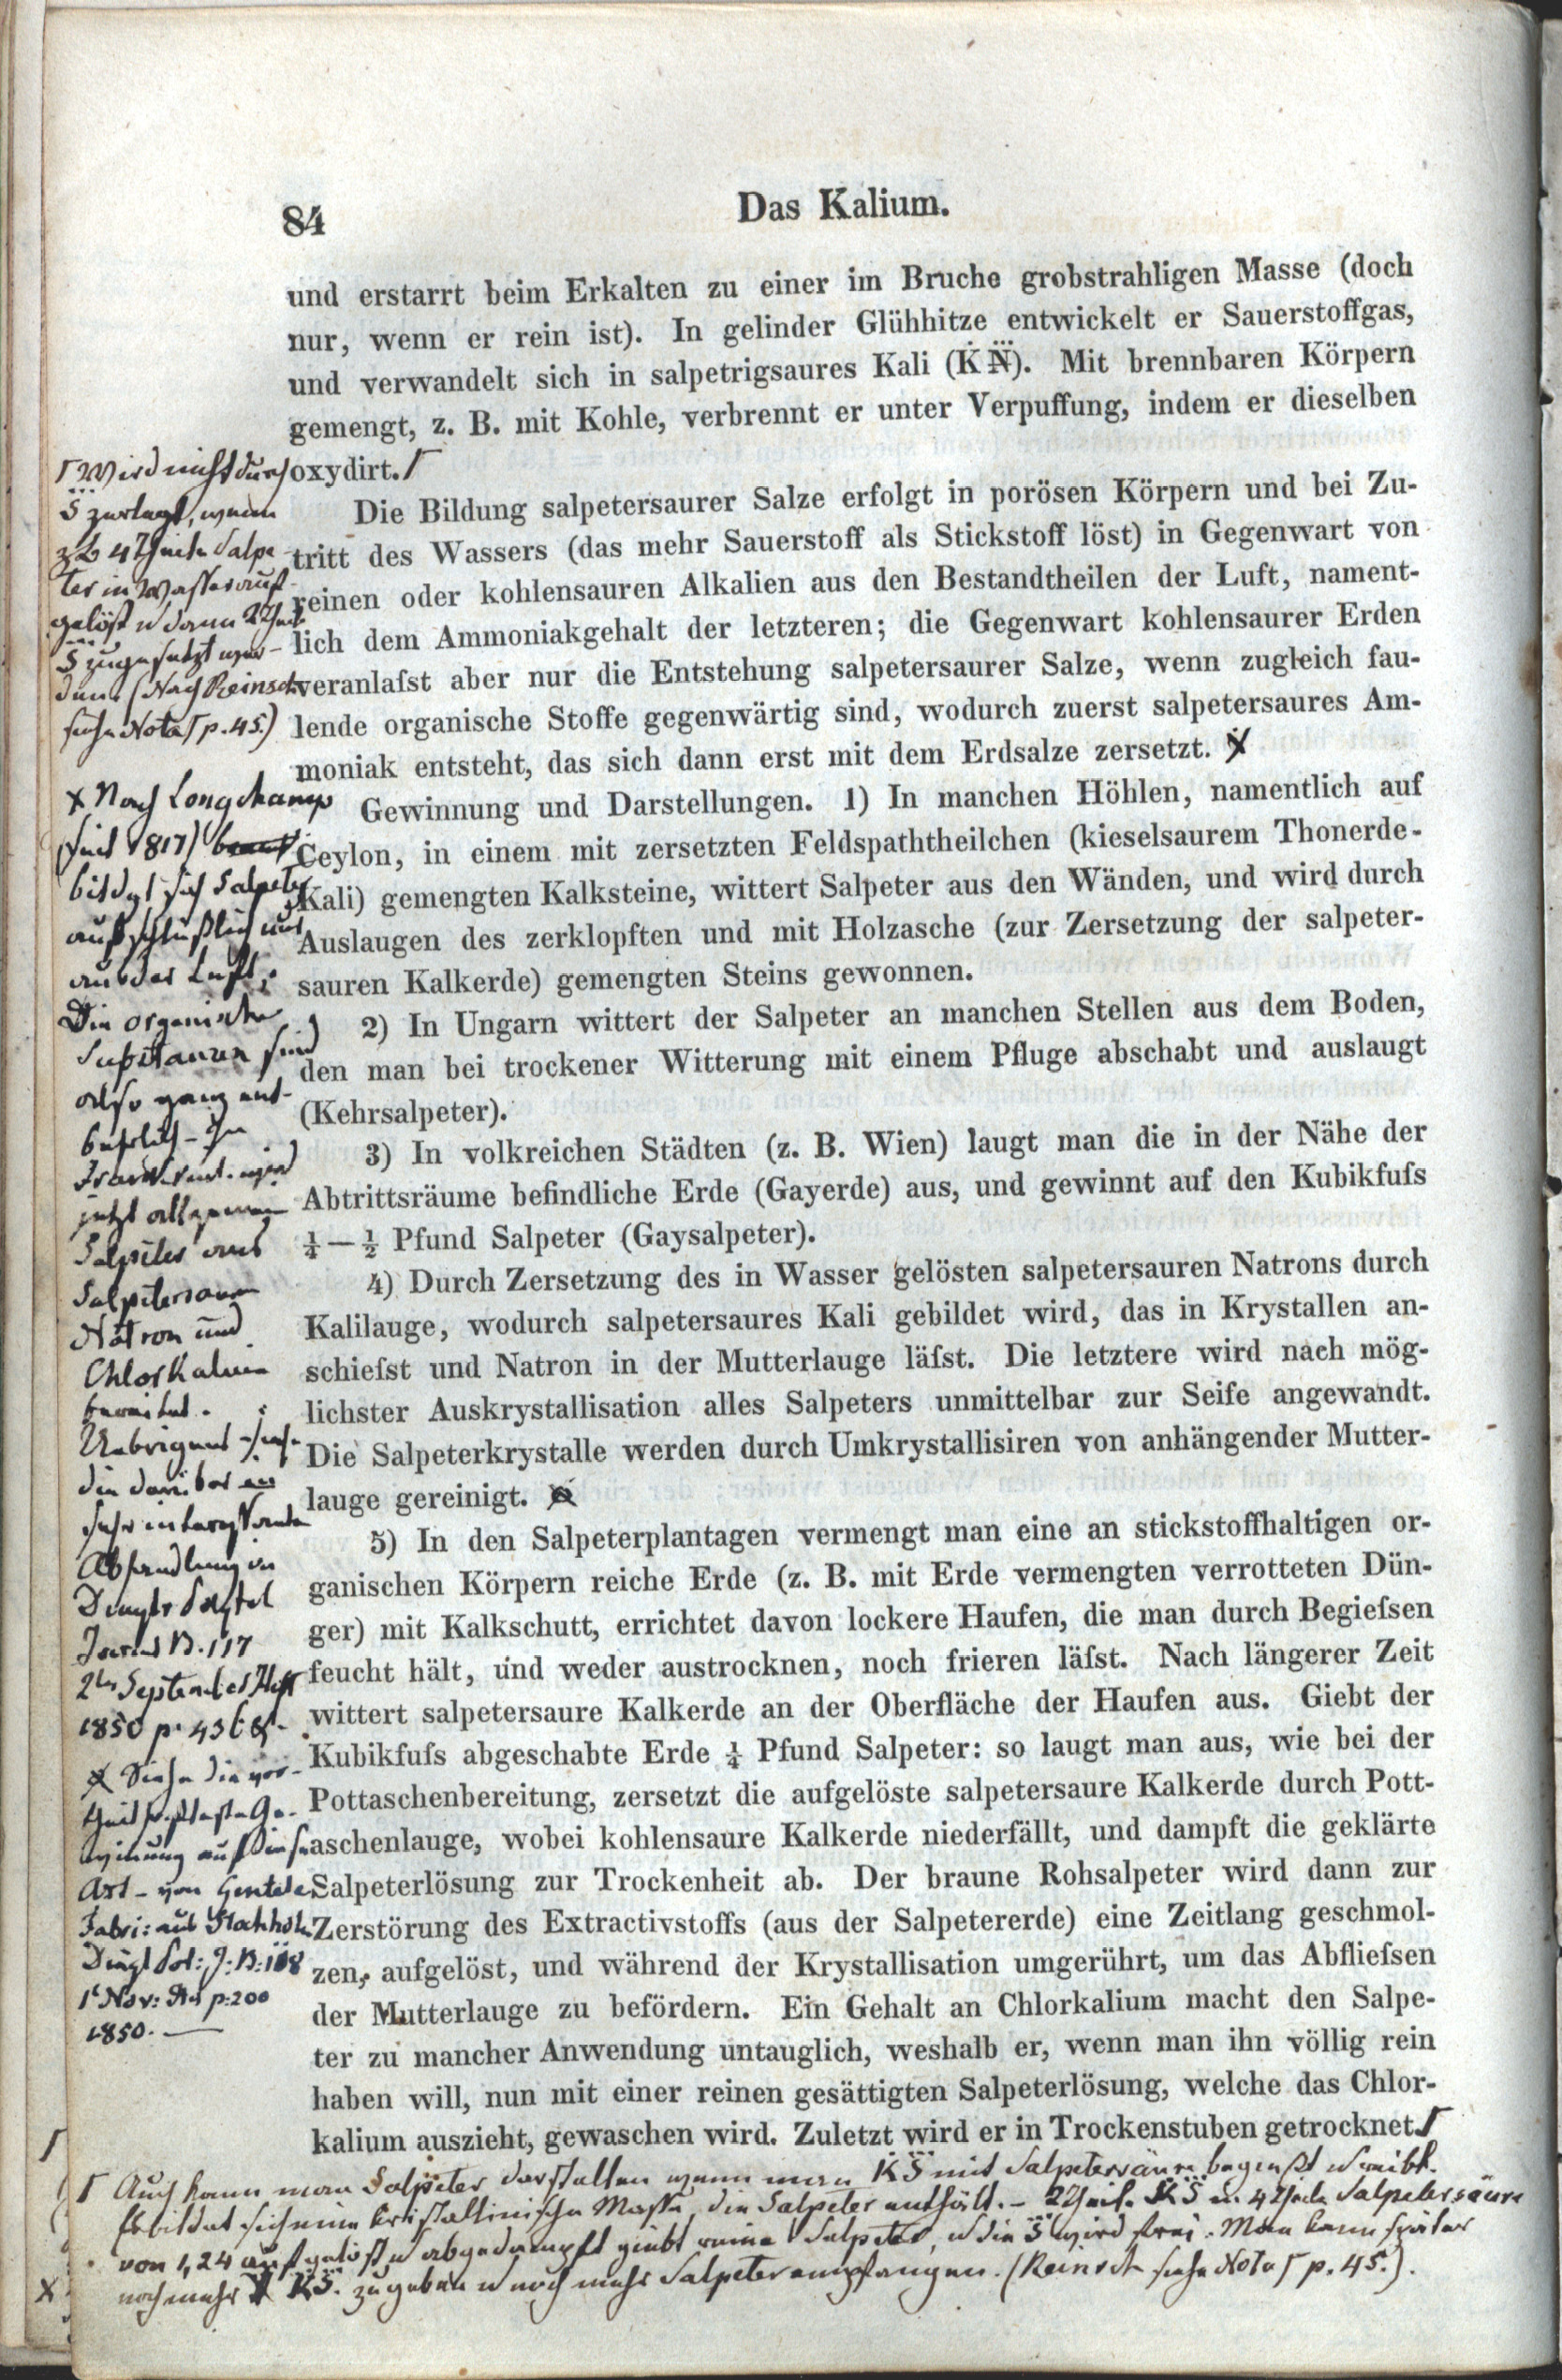 84
Das Kalium.
und erstarrt beim Erkalten zu einer im Bruche grobstrahligen Masse (doch
nur, wenn er rein ist). In gelinder Glühhitze entwickelt er Sauerstoffgas,
und verwandelt sich in salpetrigsaures Kali (K̇ N̶̈). Mit brennbaren Körpern
gemengt, z. B. mit Kohle, verbrennt er unter Verpuffung, indem er dieselben
oxydirt. Γ
Die Bildung salpetersaurer Salze erfolgt in porösen Körpern und bei Zu-
tritt des Wassers (das mehr Sauerstoff als Stickstoff löst) in Gegenwart von
reinen oder kohlensauren Alkalien aus den Bestandtheilen der Luft, nament-
lich dem Ammoniakgehalt der letzteren; die Gegenwart kohlensaurer Erden
veranlaſst aber nur die Entstehung salpetersaurer Salze, wenn zugleich fau-
lende organische Stoffe gegenwärtig sind, wodurch zuerst salpetersaures Am-
moniak entsteht, das sich dann erst mit dem Erdsalze zersetzt. X
Gewinnung und Darstellungen. 1) In manchen Höhlen, namentlich auf
Ceylon, in einem mit zersetzten Feldspaththeilchen (kieselsaurem Thonerde-
Kali) gemengten Kalksteine, wittert Salpeter aus den Wänden, und wird durch
Auslaugen des zerklopften und mit Holzasche (zur Zersetzung der salpeter-
sauren Kalkerde) gemengten Steins gewonnen.
2) In Ungarn wittert der Salpeter an manchen Stellen aus dem Boden,
den man bei trockener Witterung mit einem Pfluge abschabt und auslaugt
(Kehrsalpeter).
3) In volkreichen Städten (z. B. Wien) laugt man die in der Nähe der
Abtrittsräume befindliche Erde (Gayerde) aus, und gewinnt auf den Kubikfuſs
¼ — ½ Pfund Salpeter (Gaysalpeter).
4) Durch Zersetzung des in Wasser gelösten salpetersauren Natrons durch
Kalilauge, wodurch salpetersaures Kali gebildet wird, das in Krystallen an-
schieſst und Natron in der Mutterlauge läſst. Die letztere wird nach mög-
lichster Auskrystallisation alles Salpeters unmittelbar zur Seife angewandt.
Die Salpeterkrystalle werden durch Umkrystallisiren von anhängender Mutter-
lauge gereinigt.
5) In den Salpeterplantagen vermengt man eine an stickstoffhaltigen or-
ganischen Körpern reiche Erde (z. B. mit Erde vermengten verrotteten Dün-
ger) mit Kalkschutt, errichtet davon lockere Haufen, die man durch Begieſsen
feucht hält, und weder austrocknen, noch frieren läſst. Nach längerer Zeit
wittert salpetersaure Kalkerde an der Oberfläche der Haufen aus. Giebt der
Kubikfuſs abgeschabte Erde ¼ Pfund Salpeter: so laugt man aus, wie bei der
Pottaschenbereitung, zersetzt die aufgelöste salpetersaure Kalkerde durch Pott-
aschenlauge, wobei kohlensaure Kalkerde niederfällt, und dampft die geklärte
Salpeterlösung zur Trockenheit ab. Der braune Rohsalpeter wird dann zur
Zerstörung des Extractivstoffs (aus der Salpetererde) eine Zeitlang geschmol-
zen, aufgelöst, und während der Krystallisation umgerührt, um das Abflieſsen
der Mutterlauge zu befördern. Ein Gehalt an Chlorkalium macht den Salpe-
ter zu mancher Anwendung untauglich, weshalb er, wenn man ihn völlig rein
haben will, nun mit einer reinen gesättigten Salpeterlösung, welche das Chlor-
kalium auszieht, gewaschen wird. Zuletzt wird er in Trockenstuben getrocknet. Γ
Γ Wird nicht durch
S⃛ zerlegt, wenn
z B 4 Theile Salpe-
ter in Wasser auf-
gelöst u dann 2 Theile
S⃛ zugesetzt wer-
den. (Nach Reinsch
siehe Nota Γ p. 45.)
X Nach Longchamp
(seit 1817)
bildet sich Salpeter
ausschließlich nur
aus der Luft;
Die organischen
Substanzen sind
also ganz ent-
behrlich - In
Frankreich wird
jetzt allgemein
Salpeter aus
Salpetersaurem
Natron und
Chlorkalium
bereitet.
Uebrigens siehe
die darüber
sehr interessante
Abhandlung in
Dinglr Polytch
Journ B. 117
2tes September Heft
1850 p. 436
Siehe die vor-
theilhafteste Ge-
winnung auf diese
Art - von Gentele
Fabri: aus Stockholm
Dingl Pol: J: B: 118
1t Nov: Hft p: 200
1850. —
Γ Auch kann man Salpeter darstellen wenn man K̇S⃛ mit Salpetersäure begießt u reibt.
Es bildet sich eine kristallinische Masse, die Salpeter enthält. - 2 Theile K̇S⃛ u. 4 Theile Salpetersäure
von 1,24 aufgelöst u abgedampft giebt reine Salpeter, u die S⃛ wird frei. Man kann später
noch mehr K̇S⃛. zugeben u noch mehr Salpeter empfangen. (Reinsch siehe Nota Γ p. 45.).